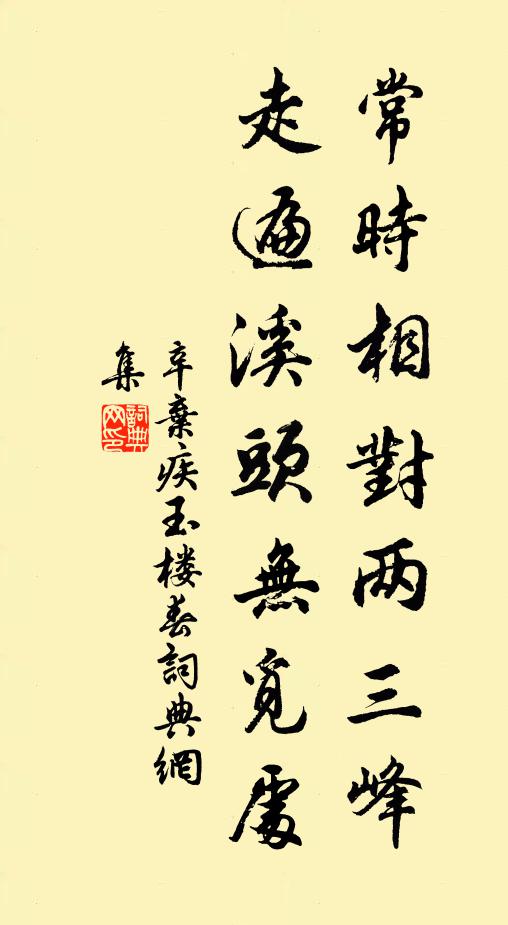 常時相對两三峰
走遍溪頭無覓處
辛棄疾玉楼春詞典網
集
詞典
网印